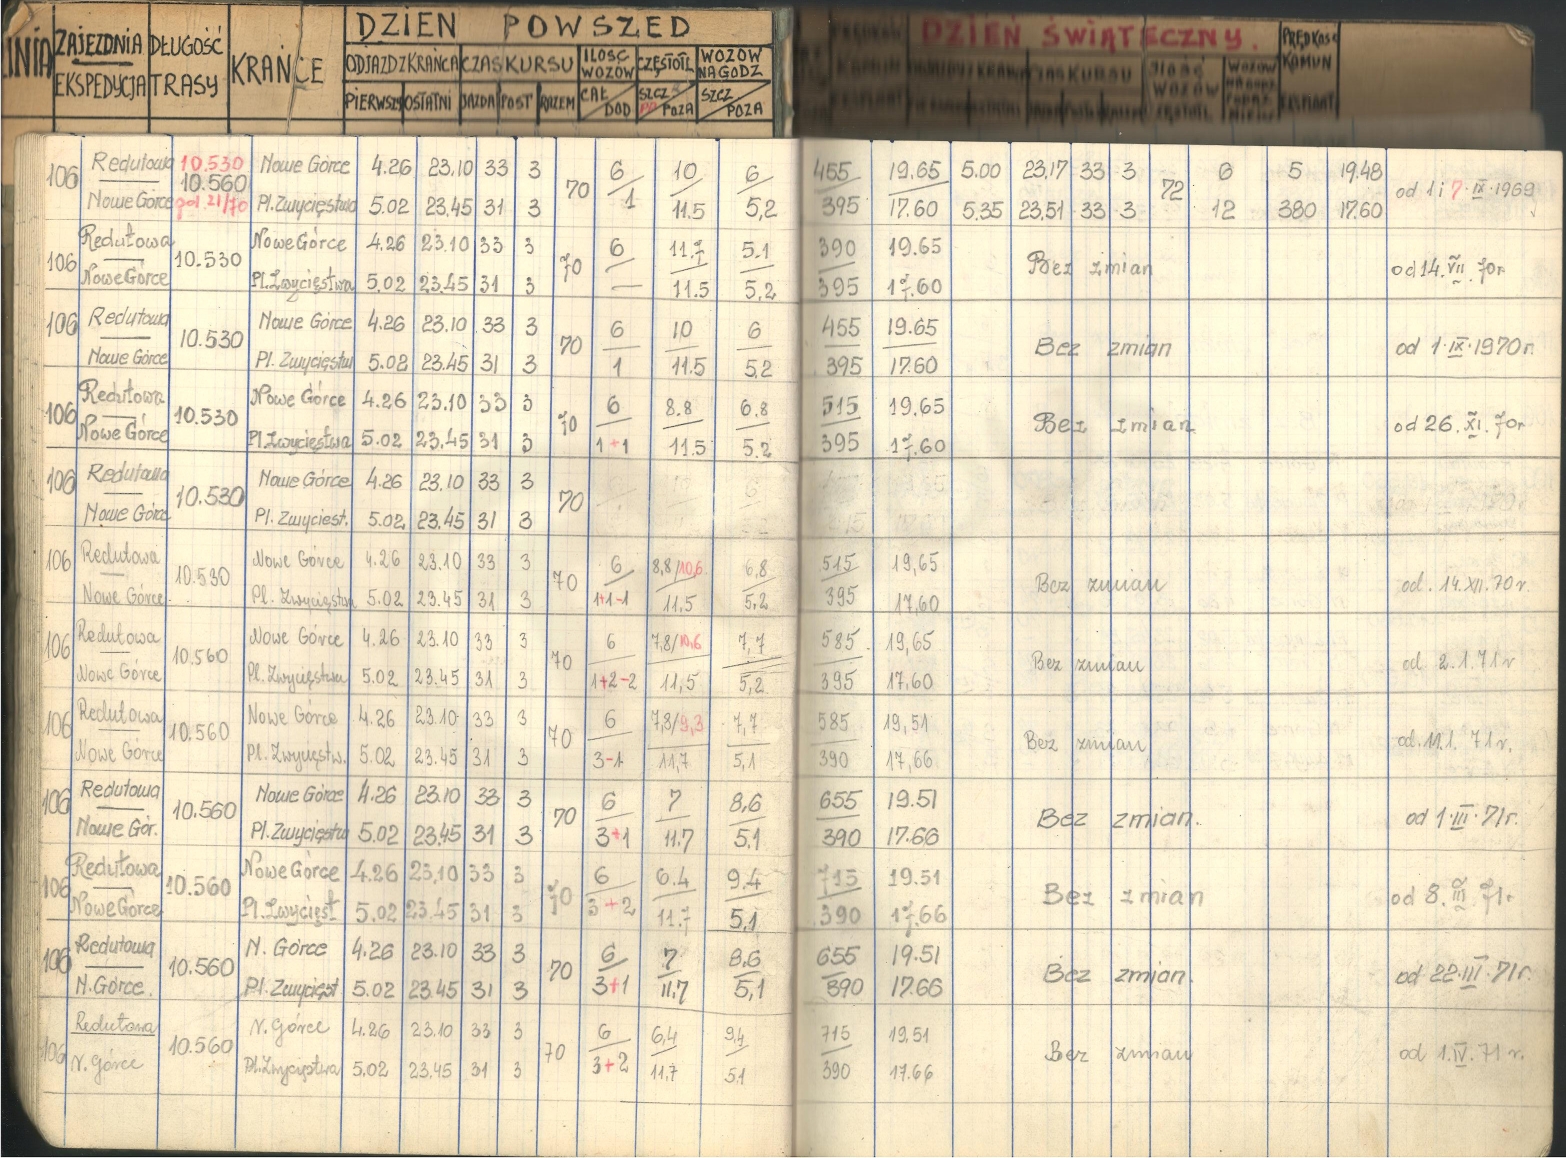 DZIEN POWSZED
DZIEŃ ŚWIĄTECZNY.
ZAJEZDNIA DŁUGOŚĆ KRAŃCE ODJAZDZ KRAŃCA CZAS KURSU ILOSC WOZÓW CZĘSTOTL WOZOW NA GODZ PRĘDKOŚĆ KOMUN
EKSPEDYCJA TRASY PIERWSZY OSTATNI JAZDA POST RAZEM CAŁ DOD SZCZ POZA SZCZ POZA EKSPLOAT
106 Redutowa 10.530 Nowe Górce 4.26 23.10 33 3 70 6 10 6 455 19,65 5.00 23,17 33 3 72 6 5 19.48 od 1 i 7·IX·1969
10.560
Nowe Górce Pl. Zwycięstwa 5.02 23.45 31 3 1 11.5 5,2 395 17.60 5.35 23,51 33 3 12 380 17.60
106 Redutowa 10.530 Nowe Górce 4.26 23.10 33 3 70 6 11.7 5.1 390 19.65 Bez zmian od 14.VII.70r
Nowe Górce Pl. Zwycięstwa 5.02 23.45 31 3 — 11.5 5,2 395 17.60
106 Redutowa 10.530 Nowe Górce 4.26 23.10 33 3 70 6 10 6 455 19.65 Bez zmian od 1·IX·1970r.
Nowe Górce Pl. Zwycięstw 5.02 23.45 31 3 1 11.5 5,2 395 17.60
106 Redutowa 10.530 Nowe Górce 4.26 23.10 33 3 70 6 8.8 6.8 515 19.65 Bez zmian od 26.XI.70r
Nowe Górce Pl. Zwycięstwa 5.02 23.45 31 3 1+1 11.5 5.2 395 17.60
106 Redutowa 10.530 Nowe Górce 4.26 23.10 33 3 70
Nowe Górce Pl. Zwyciest. 5.02 23.45 31 3
106 Redutowa 10.530 Nowe Górce 4.26 23.10 33 3 70 6 8,8/10,6 6,8 515 19,65 Bez zmian od. 14.XII.70 r.
Nowe Górce Pl. Zwycięstwa 5.02 23.45 31 3 1+1-1 11,5 5,2 395 17,60
106 Redutowa 10.560 Nowe Górce 4.26 23.10 33 3 70 6 7,8/10,6 7,7 585 19,65 Bez zmian od 2.1.71 r
Nowe Górce Pl. Zwycięstwa 5.02 23.45 31 3 1+2-2 11,5 5,2 395 17.60
106 Redutowa 10.560 Nowe Górce 4.26 23.10 33 3 70 6 7,8/9,3 7,7 585 19,51 Bez zmian od 11.1.71 r.
Nowe Górce Pl. Zwycięstw. 5.02 23.45 31 3 3-1 11,7 5,1 390 17,66
106 Redutowa 10.560 Nowe Górce 4.26 23.10 33 3 70 6 7 8,6 655 19.51 Bez zmian. od 1·III·71r.
Nowe Gór. Pl. Zwycięstw 5.02 23.45 31 3 3+1 11.7 5.1 390 17.66
106 Redutowa 10.560 Nowe Górce 4.26 23.10 33 3 70 6 6.4 9.4 715 19.51 Bez zmian od 8.III.71r
Nowe Górce Pl. Zwycięst 5.02 23.45 31 3 3+2 11.7 5.1 390 17.66
106 Redutowa 10.560 N. Górce 4.26 23.10 33 3 70 6 7 8,6 655 19.51 Bez zmian. od 22·III·71r.
N. Górce. Pl. Zwycięst 5.02 23.45 31 3 3+1 11,7 5,1 390 17.66
106 Redutowa 10.560 N. Górce 4.26 23.10 33 3 70 6 6,4 9,4 715 19,51 Bez zmian od 1.IV.71 r.
N. Górce Pl. Zwycięstwa 5.02 23.45 31 3 3+2 11,7 5.1 390 17.66